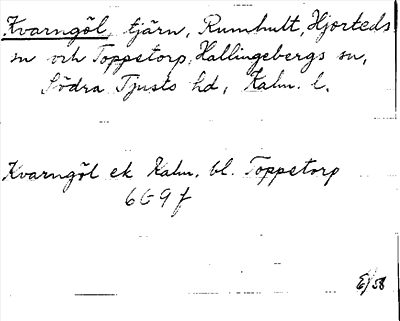 Kvarngöl, tjärn, Rumhult, Hjorteds
sn och Toppetorp, Hallingebergs sn,
Södra Tjusts hd, Kalm. l.
Kvarngöl ek Kalm. bl. Toppetorp
6G 9f
E/58